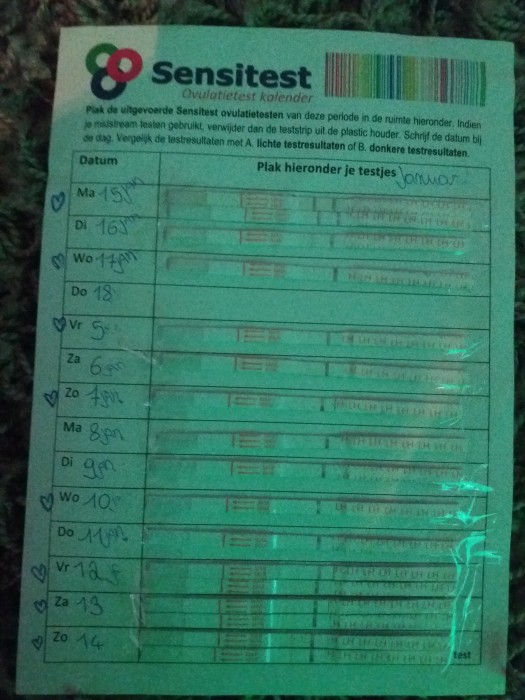 Sensitest
Ovulatietest kalender
Plak de uitgevoerde Sensitest ovulatietesten van deze periode in de ruimte hieronder. Indien
je midstream testen gebruikt, verwijder dan de teststrip uit de plastic houder. Schrijf de datum bij
de dag. Vergelijk de testresultaten met A. lichte testresultaten of B. donkere testresultaten.
Datum
Plak hieronder je testjes Januari
Ma 15 jan
Di 16 jan
Wo 17 jan
Do 18
Vr 5
Za 6 jan
Zo 7 jan
Ma 8 jan
Di 9 jan
Wo 10
Do 11 jan
Vr 12
Za 13
Zo 14
test